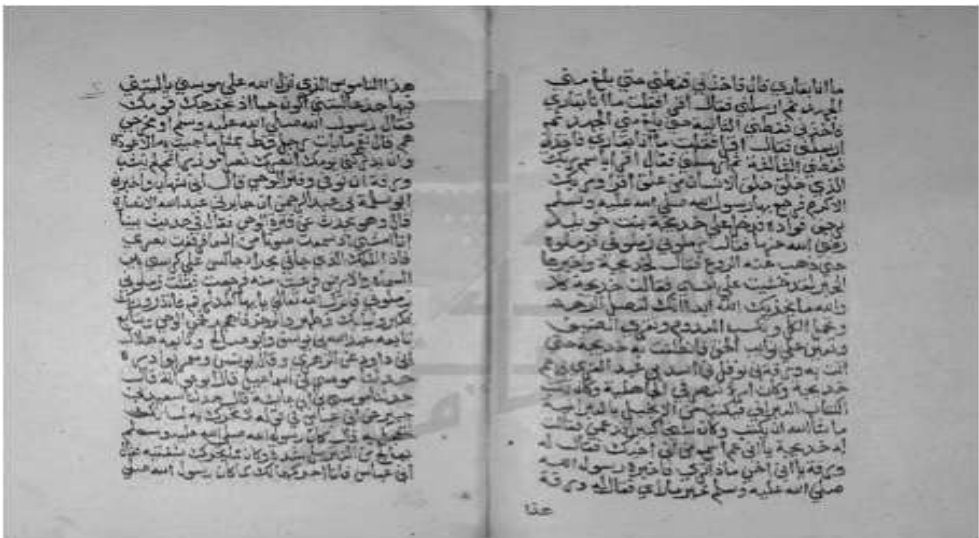 ما انا بقاري قال فاخذني فغطني حتى بلغ مني
الجهد ثم ارسلني فقال اقرا فقلت ما انا بقاري
فاخذني فغطني الثانية حتى بلغ مني الجهد ثم
ارسلني فقال اقرا فقلت ما انا بقاري فاخذني
فغطني الثالثة ثم ارسلني فقال اقرا باسم ربك
الذي خلق خلق الانسان من علق اقرا وربك
الاكرم فرجع بها رسول الله صلي الله عليه وسلم
يرجف فواده فدخل على خديجة بنت خويلد
رضي الله عنها فقال زملوني زملوني فزملوه
حتى ذهب عنه الروع فقال لخديجة واخبرها
الخبر لقد خشيت على نفسي فقالت خديجة كلا
والله ما يخزيك الله ابدا انك لتصل الرحم
وتحمل الكل وتكسب المعدوم وتقري الضيف
وتعين على نوايب الحق فانطلقت به خديجة حتى
اتت به ورقة بن نوفل بن اسد بن عبد العزي بن عم
خديجة وكان امرا تنصر في الجاهلية وكان يكتب
الكتاب العبراني فيكتب من الانجيل بالعبرانية
ما شا الله ان يكتب وكان شيخا كبيرا قد عمي فقالت
له خديجة يا ابن عم اسمع من ابن اخيك فقال له
ورقة يا ابن اخي ماذا تري فاخبره رسول الله
صلي الله عليه وسلم خبر ما راي فقال له ورقة
هذا
هذا الناموس الذي نزل الله على موسى يا ليتني
فيها جذعا ليتني اكون حيا اذ يخرجك قومك
فقال رسول الله صلي الله عليه وسلم او مخرجي
هم قال نعم لم يات رجل قط بمثل ما جيت به الا عودي
وان يدركني يومك انصرك نصرا موزرا ثم لم ينشب
ورقة ان توفي وفتر الوحي قال ابن شهاب واخبرني
ابو سلمة بن عبد الرحمن ان جابر بن عبد الله الانصاري
قال وهو يحدث عن فترة الوحي فقال في حديثه بينا
انا امشي اذ سمعت صوتا من السما فرفعت بصري
فاذا الملك الذي جاني بحرا جالس على كرسي بين
السما والارض فرعبت منه فرجعت فقلت زملوني
زملوني فانزل الله تعالى يا ايها المدثر قم فانذر وربك
فكبر وثيابك فطهر والرجز فاهجر فحمي الوحي وتتابع
تابعه عبد الله بن يوسف وابو صالح وتابعه هلال
بن داود عن الزهري وقال يونس ومعمر بوادره
حدثنا موسى بن اسماعيل قال ابو عوانة قال
حدثنا موسى بن ابي عايشة قال حدثنا سعيد بن
جبير عن ابن عباس في قوله لا تحرك به لسانك
لتعجل به قال كان رسول الله صلي الله عليه وسلم
يعالج من التنزيل شدة وكان مما يحرك شفتيه فقال
ابن عباس فانا احركهما لك كما كان رسول الله صلي